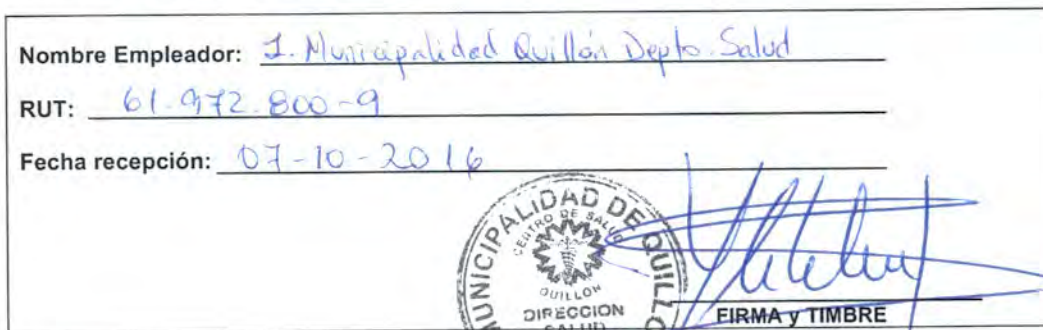 Nombre Empleador: I. Municipalidad Quillón Depto. Salud
RUT: 61.972.800-9
Fecha recepción: 07-10-2016
MUNICIPALIDAD DE QUILLO
CENTRO DE SALUD
QUILLON
DIRECCION
SALUD
FIRMA y TIMBRE